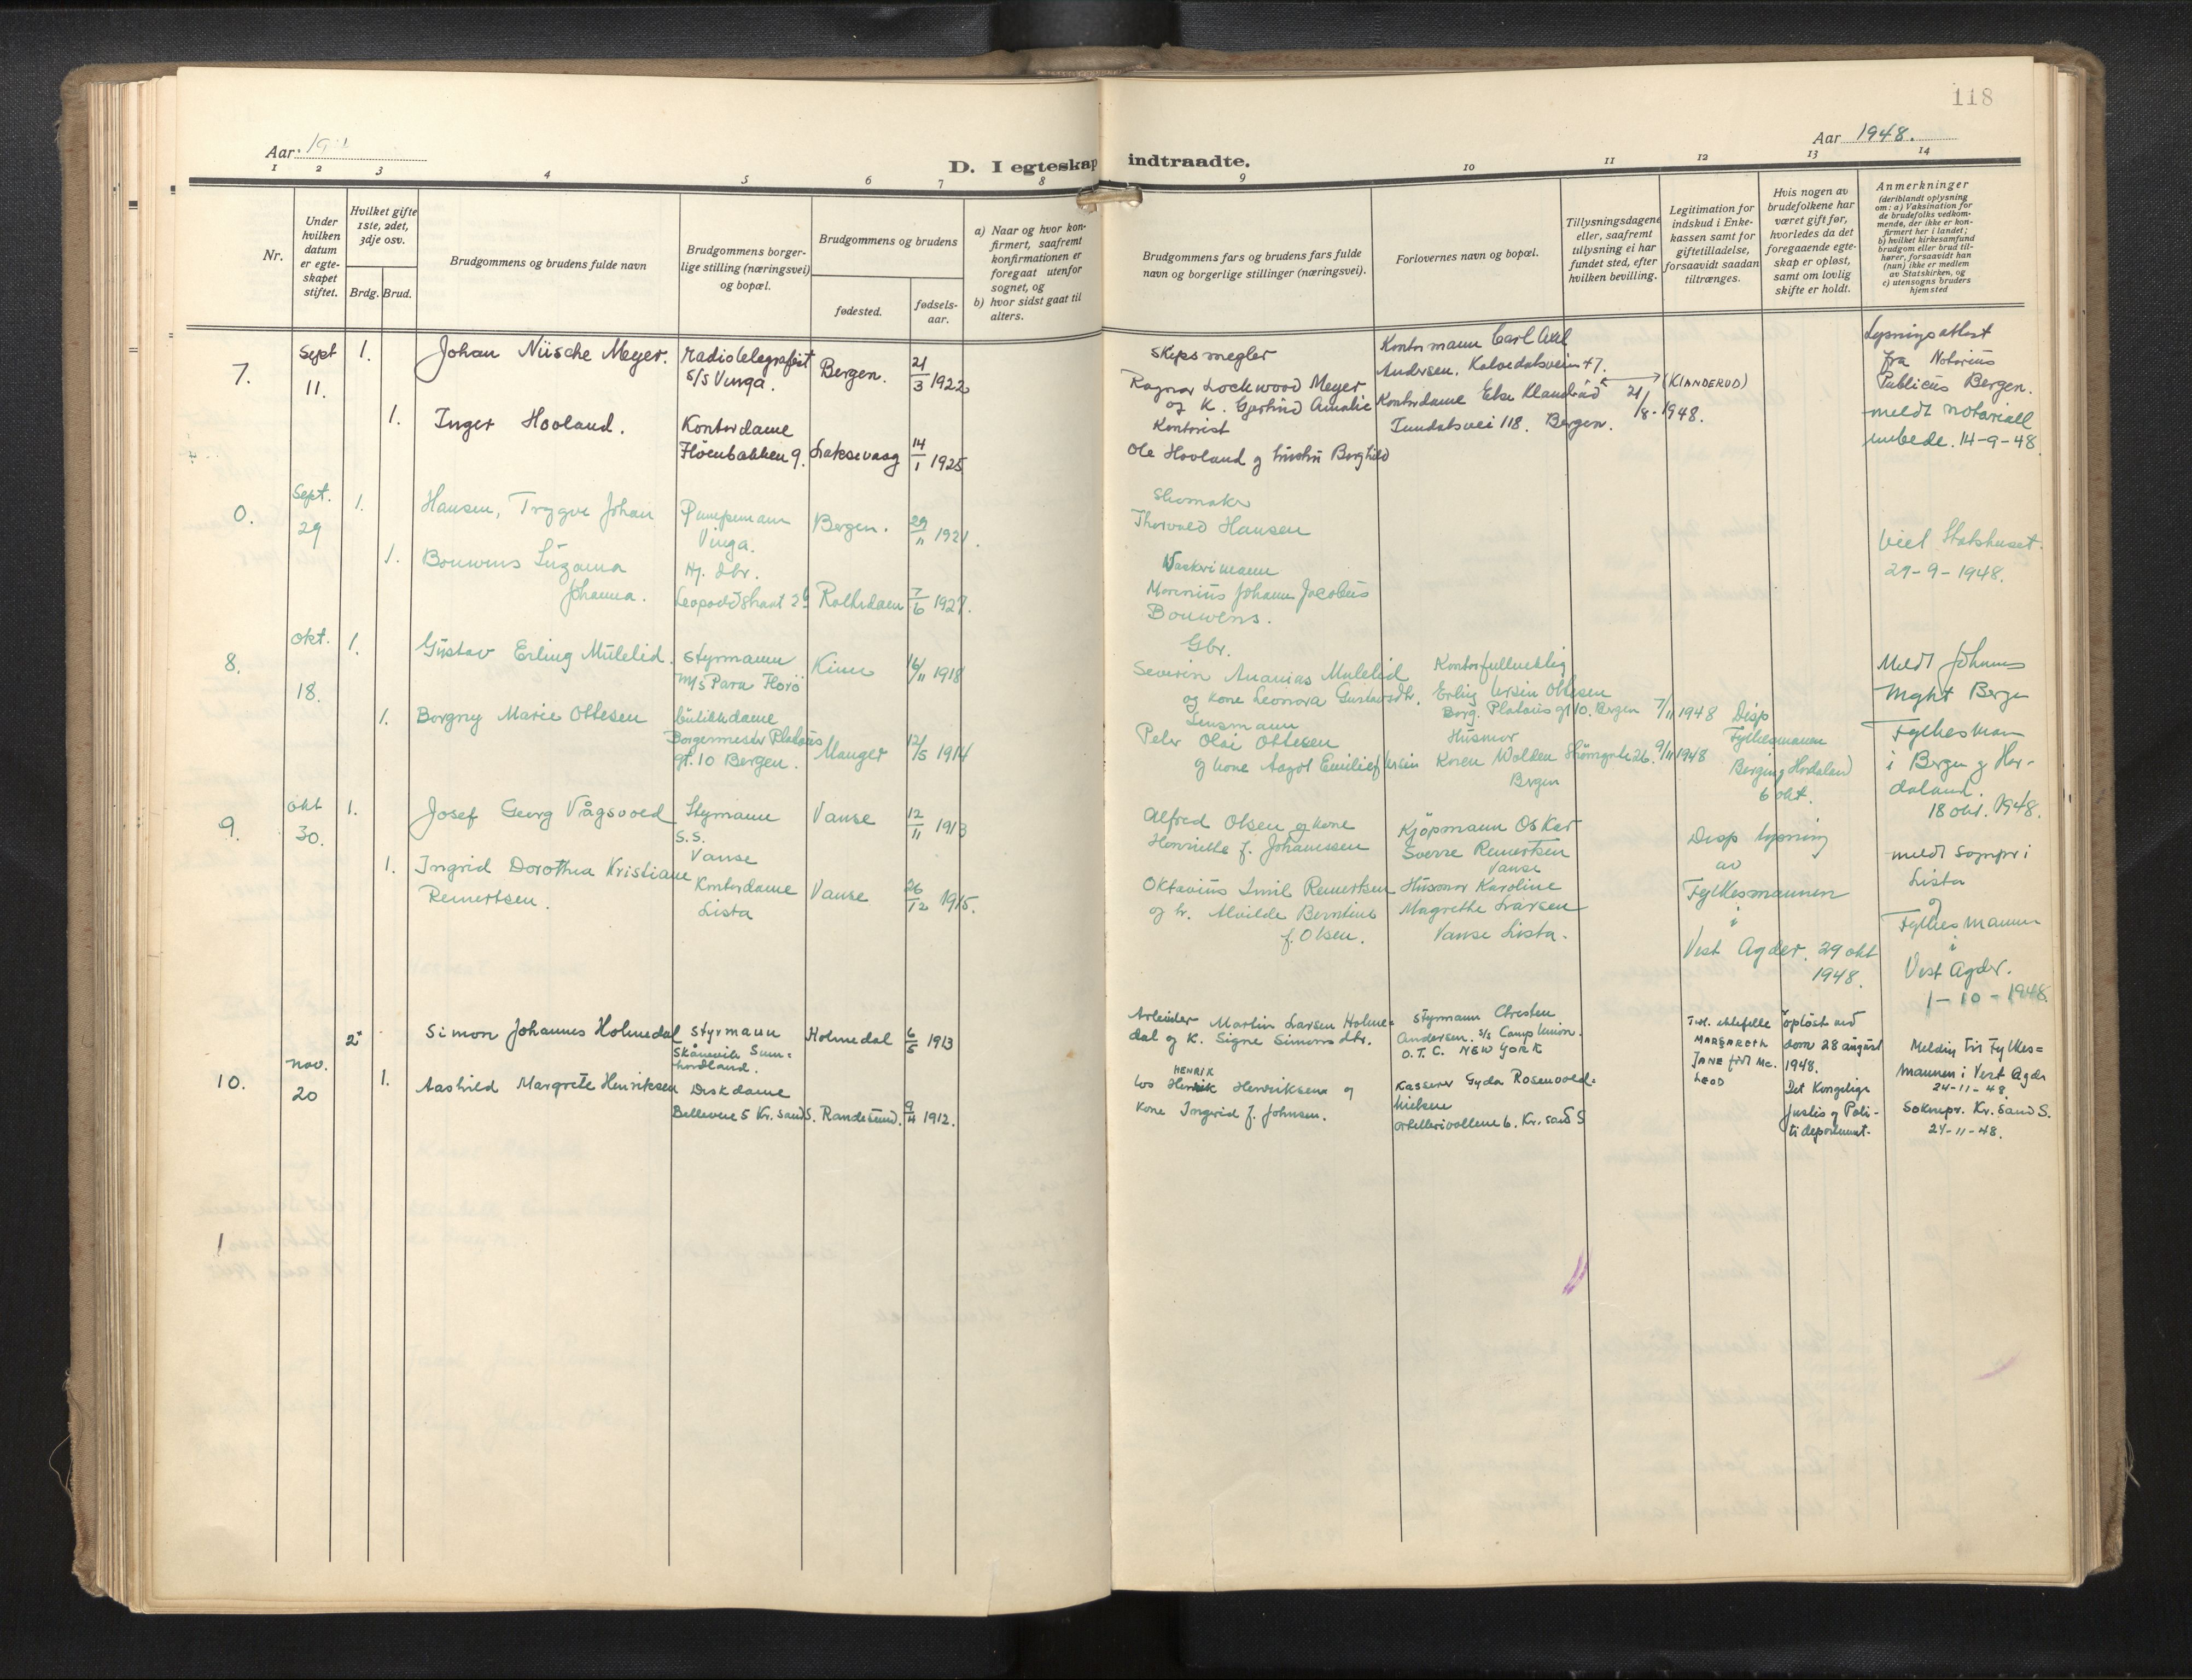 118
Aar 19
Aar 1948.
D. I egteskap indtraadte.
1 2 3 4 5 6 7 8 9 10 11 12 13 14
Nr.
Under
hvilken
datum
er egte-
skapet
stiftet.
Hvilket gifte
1ste, 2det,
3dje osv.
Brdg. Brud.
Brudgommens og brudens fulde navn
Brudgommens borger-
lige stilling (næringsvei)
og bopæl.
Brudgommens og brudens
fødested.
fødsels-
aar.
a) Naar og hvor kon-
firmert, saafremt
konfirmationen er
foregaat utenfor
sognet, og
b) hvor sidst gaat til
alters.
Brudgommens fars og brudens fars fulde
navn og borgerlige stillinger (næringsvei).
Forlovernes navn og bopæl.
Tillysningsdagene
eller, saafremt
tillysning ei har
fundet sted, efter
hvilken bevilling.
Legitimation for
indskud i Enke-
kassen samt for
giftetilladelse,
forsaavidt saadan
tiltrænges.
Hvis nogen av
brudefolkene har
været gift før,
hvorledes da det
foregaaende egte-
skap er opløst,
samt om lovlig
skifte er holdt.
Anmerkninger
(deriblandt oplysning
om: a) Vaksination for
de brudefolks vedkom-
mende, der ikke er kon-
firmert her i landet;
b) hvilket kirkesamfund
brudgom eller brud til-
hører, forsaavidt han
(hun) ikke er medlem
av Statskirken, og
c) utensogns bruders
hjemsted
7.
Sept
11.
1.
Johan Nüsche Meyer.
radiotelegrafist
s/s Vinga.
Bergen.
21/3 1922
Skipsmegler
Ragnar Lockwood Meyer
og K. Gjertrud Amalie
Kontormann Carl Axel
Andersen. Kalvedalsveien 47.
Kontordame Else Klanderud (KLANDERUD)
118. Bergen.
21/8-1948.
Lysningsattest
fra Notarius
Publicus Bergen.
meldt notariell
14-9-48
1.
Inger Hooland.
Kontordame
Fløenbakken 9.
Laksevaag
14/1 1925
Kontorist
Ole Hooland og hustru Borghild
0.
Sept.
29
1.
Hansen, Trygve Johan
Pumpemann
Vinga.
Bergen.
29/11 1921.
Skomaker
Thorvald Hansen
viet Statshuset
29-9-1948.
1.
Bouwens Suzanna
Johanna.
Hj. dtr.
Leopoldstraat 26
Rotterdam
7/6 1927.
Marinius Johann Jacobus
Bouwens.
8.
Okt.
18.
1.
Gustav Erling Mulelid.
styrmann
m/s Para Florø
Kinn
16/11 1918
Gbr.
Severin Ananias Mulelid
og kone Leonora Gustavsdtr.
Kontorfullmektig
Erling Ursin Ottesen
Borg. Platous gt 10. Bergen
7/11 1948
Disp
Fylkesmannen
Bergen og Hordaland
6 okt.
Meldt Johannes
Mght Bergen
Fylkesmann
i Bergen og Hor-
daland.
18 okt. 1948.
1.
Borgny Marie Ottesen
butikkdame
Borgermester Platous
gt. 10 Bergen.
Manger
12/5 1914
Lensmann
Peter Olai Ottesen
og kone Aagot Emilie f Ursin
Husmor
Karen Wolden Strømgate 26.
Bergen
9/11 1948
9.
Okt
30.
1.
Josef Georg Vågsvold
Styrmann
S.S.
Vanse
Vanse
12/11 1913
Alfred Olsen og kone
Henriette f. Johannssen
Kjøpmann Oskar
Sverre Reinertsen
Vanse
Disp lysning
av
Fylkesmannen
i
Vest Agder. 29 okt
1948.
meldt sognpr i
Lista
og
Fylkesmann
i
Vest Agder.
1-10-1948.
1.
Ingrid Dorothea Kristiane
Reinertsen.
Kontordame
Lista
Vanse
26/12 1915.
Oktavius Emil Reinertsen
og h. Alvilde Berntine
f. Olsen.
Husmor Karoline
Magrethe Larsen
Vanse Lista.
10.
nov.
20
2
Simon Johannes Holmedal
styrmann
Skånevik Sunn=
hordland.
Holmedal
6/5 1913
Arbeider Martin Larsen Holme=
dal og K. Signe Simonsdtr.
Styrmann Christen
Andersen. s/s Camp Union.
O.T.C. NEW YORK
Tidl. ektefelle
MARGARETH
JANE født Mc.
LEOD
oppløst ved
dom 28 august
1948.
Det Kongelige
Justis og Poli-
tidepartement.
Melding til Fylkes=
mannen i Vest Agder
24-11-48
Soknepr. Kr. sand S.
24-11-48.
1.
Aashild Margrete Henriksen
Diskdame
Bellevue 5 Kr. sand S.
Randesund.
9/4 1912.
HENRIK
Los Henrik Henriksen og
kone Ingrid f. Johnsen.
Kasserer Gyda Rosenvold=
Nielsen
Artillerivollene 6. Kr. sand S
1